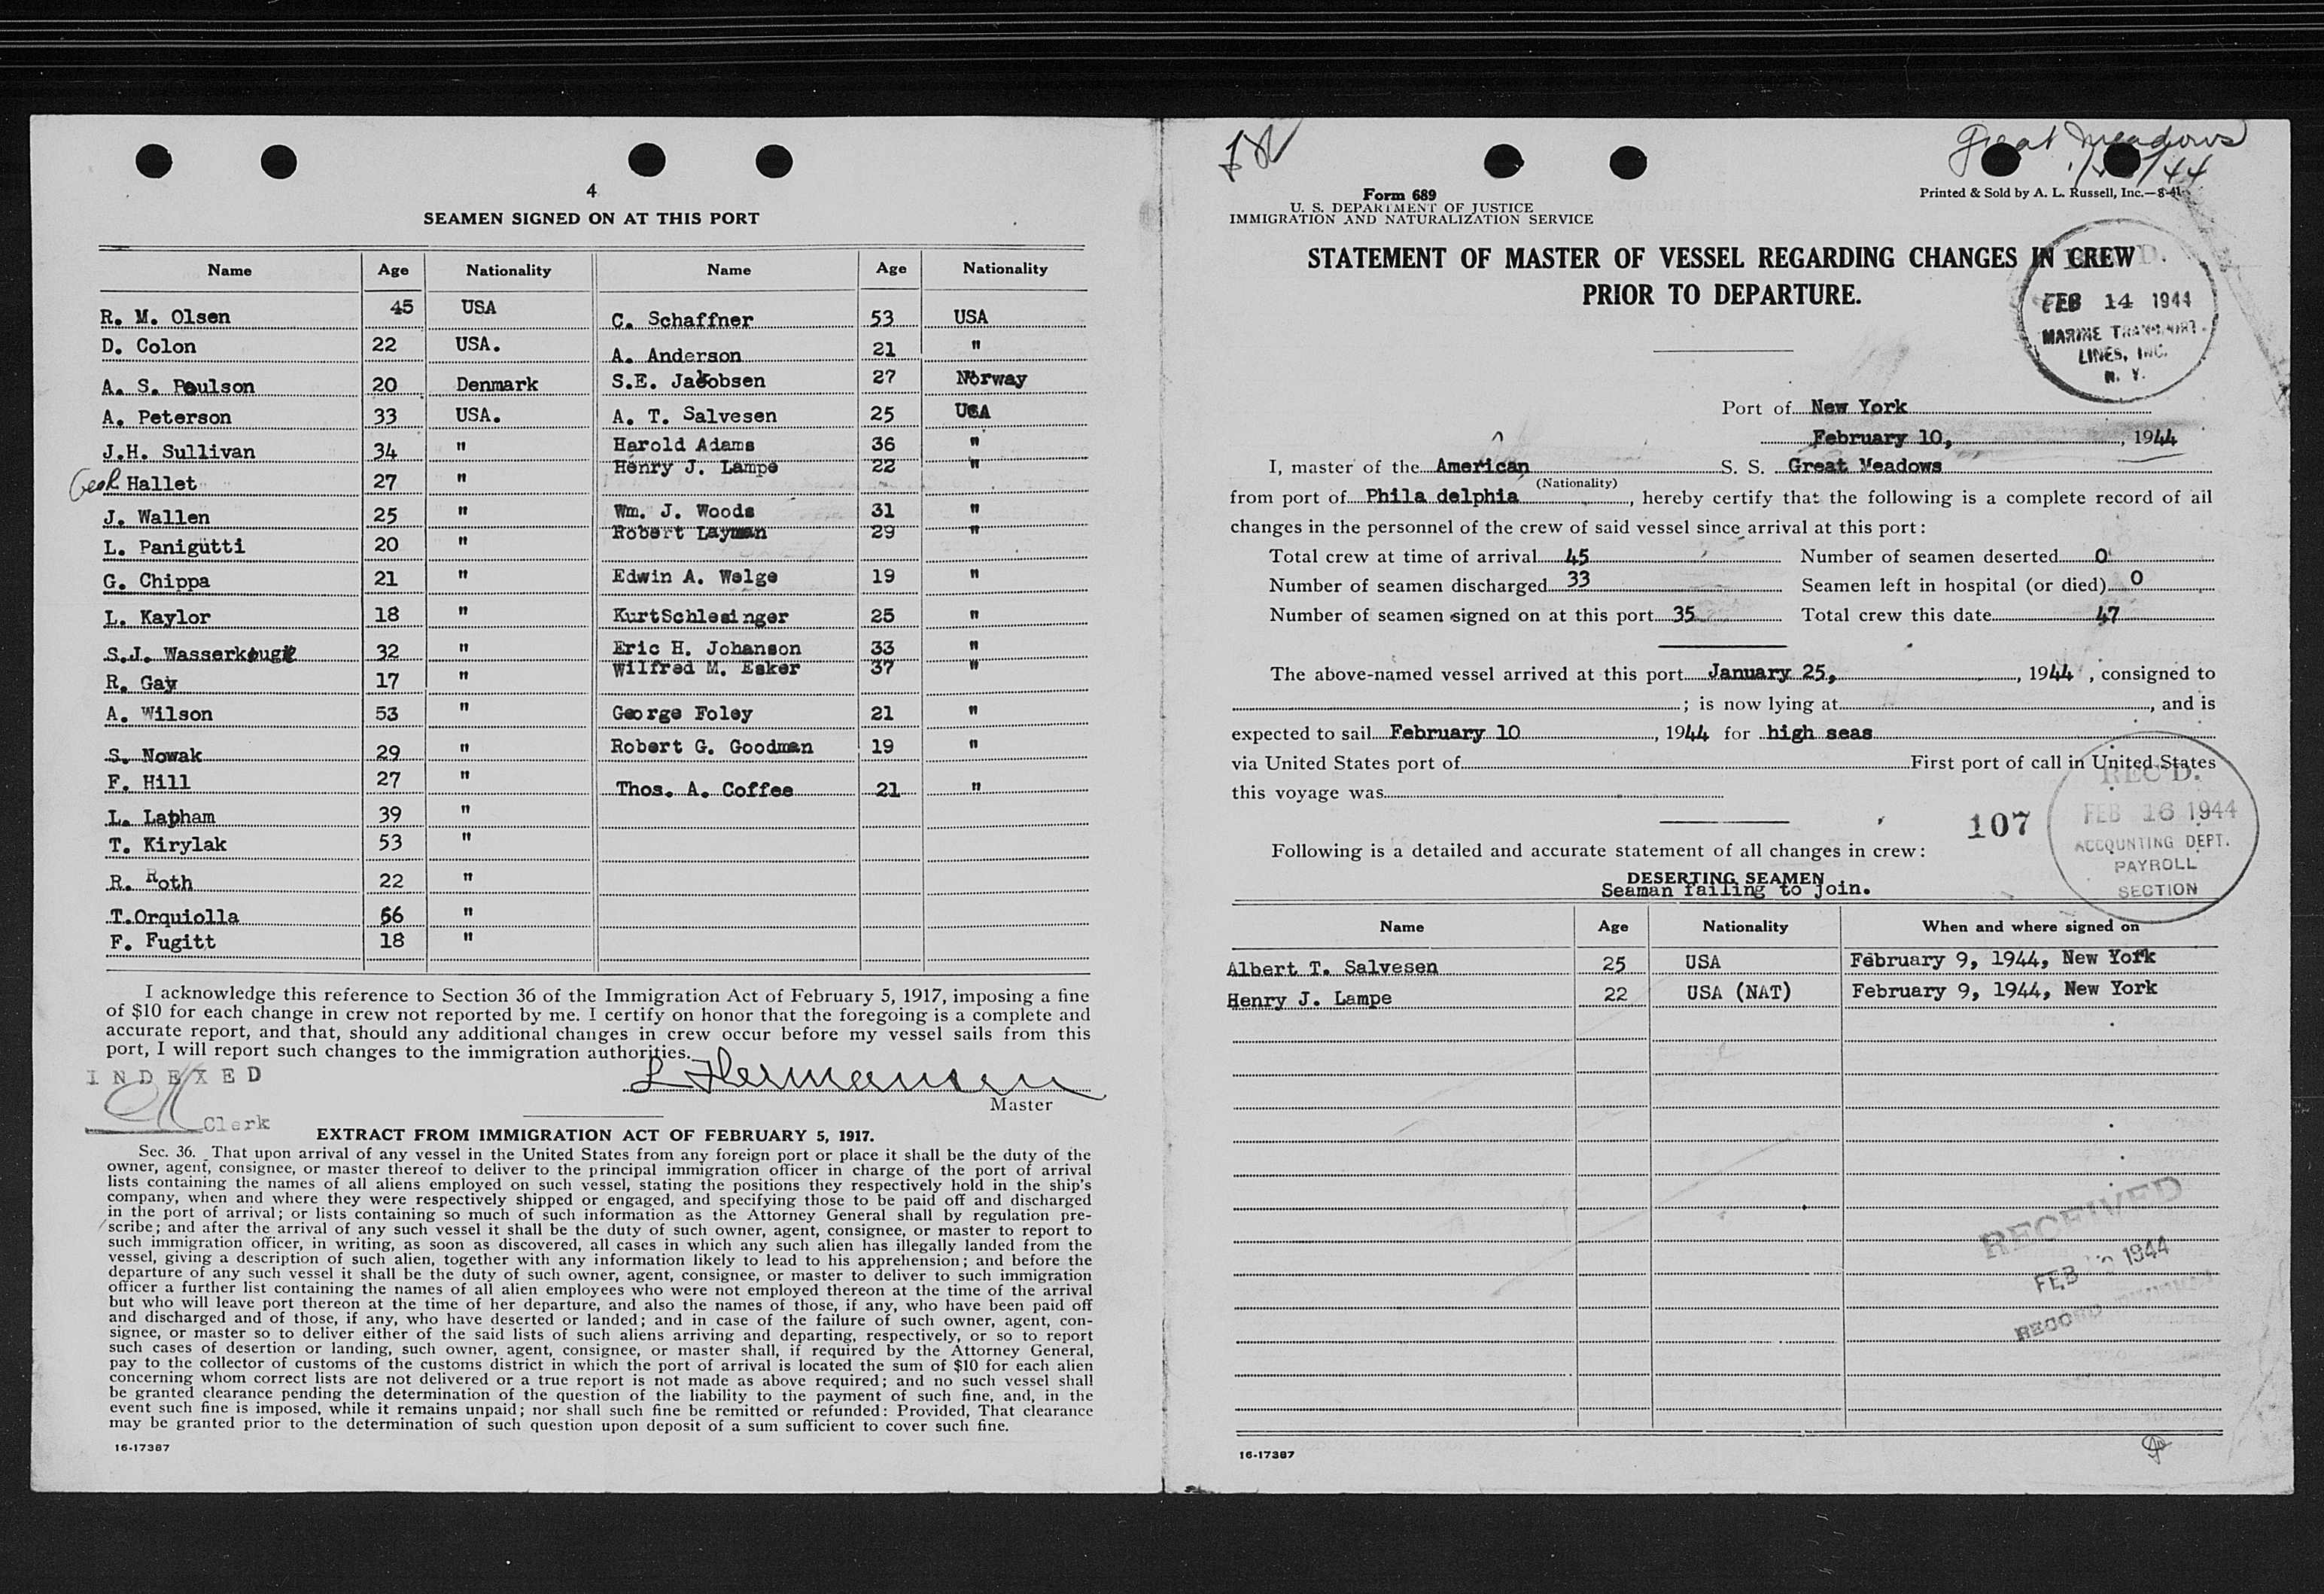 4
SEAMEN SIGNED ON AT THIS PORT
Name Age Nationality Name Age Nationality
R. M. Olsen 45 USA C. Schaffner 53 USA
D. Colon 22 USA. A. Anderson 21 "
A. S. Poulson 20 Denmark S.E. Jakobsen 27 Norway
A. Peterson 33 USA. A. T. Salvesen 25 USA
J.H. Sullivan 34 " Harold Adams 36 "
Hallet 27 " Henry J. Lampe 22 "
J. Wallen 25 " Wm. J. Woods 31 "
L. Panigutti 20 " Robert Layman 29 "
G. Chippa 21 " Edwin A. Welge 19 "
L. Kaylor 18 " KurtSchlesinger 25 "
S.J. 32 " Eric H. Johanson 33 "
R. Gay 17 " Wilfred M. Esker 37 "
A. Wilson 53 " George Foley 21 "
S. Nowak 29 " Robert G. Goodman 19 "
F. Hill 27 " Thos. A. Coffee 21 "
L. Lapham 39 "
T. Kirylak 53 "
R. Roth 22 "
T.Orquiolla "
F. Fugitt 18 "
I acknowledge this reference to Section 36 of the Immigration Act of February 5, 1917, imposing a fine
of $10 for each change in crew not reported by me. I certify on honor that the foregoing is a complete and
accurate report, and that, should any additional changes in crew occur before my vessel sails from this
port, I will report such changes to the immigration authorities.
INDEXED
L Hermansen
Master
Clerk
EXTRACT FROM IMMIGRATION ACT OF FEBRUARY 5, 1917.
Sec. 36. That upon arrival of any vessel in the United States from any foreign port or place it shall be the duty of the
owner, agent, consignee, or master thereof to deliver to the principal immigration officer in charge of the port of arrival
lists containing the names of all aliens employed on such vessel, stating the positions they respectively hold in the ship's
company, when and where they were respectively shipped or engaged, and specifying those to be paid off and discharged
in the port of arrival; or lists containing so much of such information as the Attorney General shall by regulation pre-
scribe; and after the arrival of any such vessel it shall be the duty of such owner, agent, consignee, or master to report to
such immigration officer, in writing, as soon as discovered, all cases in which any such alien has illegally landed from the
vessel, giving a description of such alien, together with any information likely to lead to his apprehension; and before the
departure of any such vessel it shall be the duty of such owner, agent, consignee, or master to deliver to such immigration
officer a further list containing the names of all alien employees who were not employed thereon at the time of the arrival
but who will leave port thereon at the time of her departure, and also the names of those, if any, who have been paid off
and discharged and of those, if any, who have deserted or landed; and in case of the failure of such owner, agent, con-
signee, or master so to deliver either of the said lists of such aliens arriving and departing, respectively, or so to report
such cases of desertion or landing, such owner, agent, consignee, or master shall, if required by the Attorney General,
pay to the collector of customs of the customs district in which the port of arrival is located the sum of $10 for each alien
concerning whom correct lists are not delivered or a true report is not made as above required; and no such vessel shall
be granted clearance pending the determination of the question of the liability to the payment of such fine, and, in the
event such fine is imposed, while it remains unpaid; nor shall such fine be remitted or refunded: Provided, That clearance
may be granted prior to the determination of such question upon deposit of a sum sufficient to cover such fine.
16-17387
Great Meadows
Form 689
U. S. DEPARTMENT OF JUSTICE
IMMIGRATION AND NATURALIZATION SERVICE
Printed & Sold by A. L. Russell, Inc.—8-41
STATEMENT OF MASTER OF VESSEL REGARDING CHANGES IN CREW
PRIOR TO DEPARTURE.
REC'D.
FEB 14 1944
MARINE TRANSPORT
LINES, INC.
N. Y.
Port of New York
February 10, 1944
I, master of the American S. S. Great Meadows
(Nationality)
from port of Phila delphia, hereby certify that the following is a complete record of all
changes in the personnel of the crew of said vessel since arrival at this port:
Total crew at time of arrival 45 Number of seamen deserted 0
Number of seamen discharged 33 Seamen left in hospital (or died) 0
Number of seamen signed on at this port 35 Total crew this date 47
The above-named vessel arrived at this port January 25, , 1944 , consigned to
; is now lying at , and is
expected to sail February 10 , 1944 for high seas
via United States port of First port of call in United States
this voyage was
107
REC'D.
FEB 16 1944
ACCOUNTING DEPT.
PAYROLL
SECTION
Following is a detailed and accurate statement of all changes in crew:
DESERTING SEAMEN
Seaman failing to join.
Name Age Nationality When and where signed on
Albert T. Salvesen 25 USA February 9, 1944, New York
Henry J. Lampe 22 USA (NAT) February 9, 1944, New York
RECEIVED
FEB 1944
RECORD
16-17387